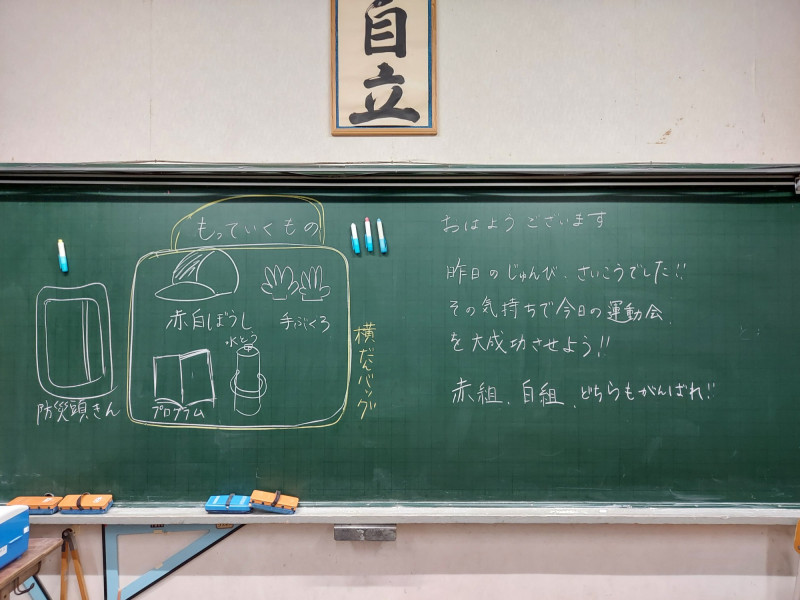 自立
もっていくもの
赤白ぼうし
手ぶくろ
水とう
プログラム
防災頭きん
横だんバッグ
おはようございます
昨日のじゅんび、さいこうでした!!
その気持ちで今日の運動会、
を大成功させよう!!
赤組、白組、どちらもがんばれ!!